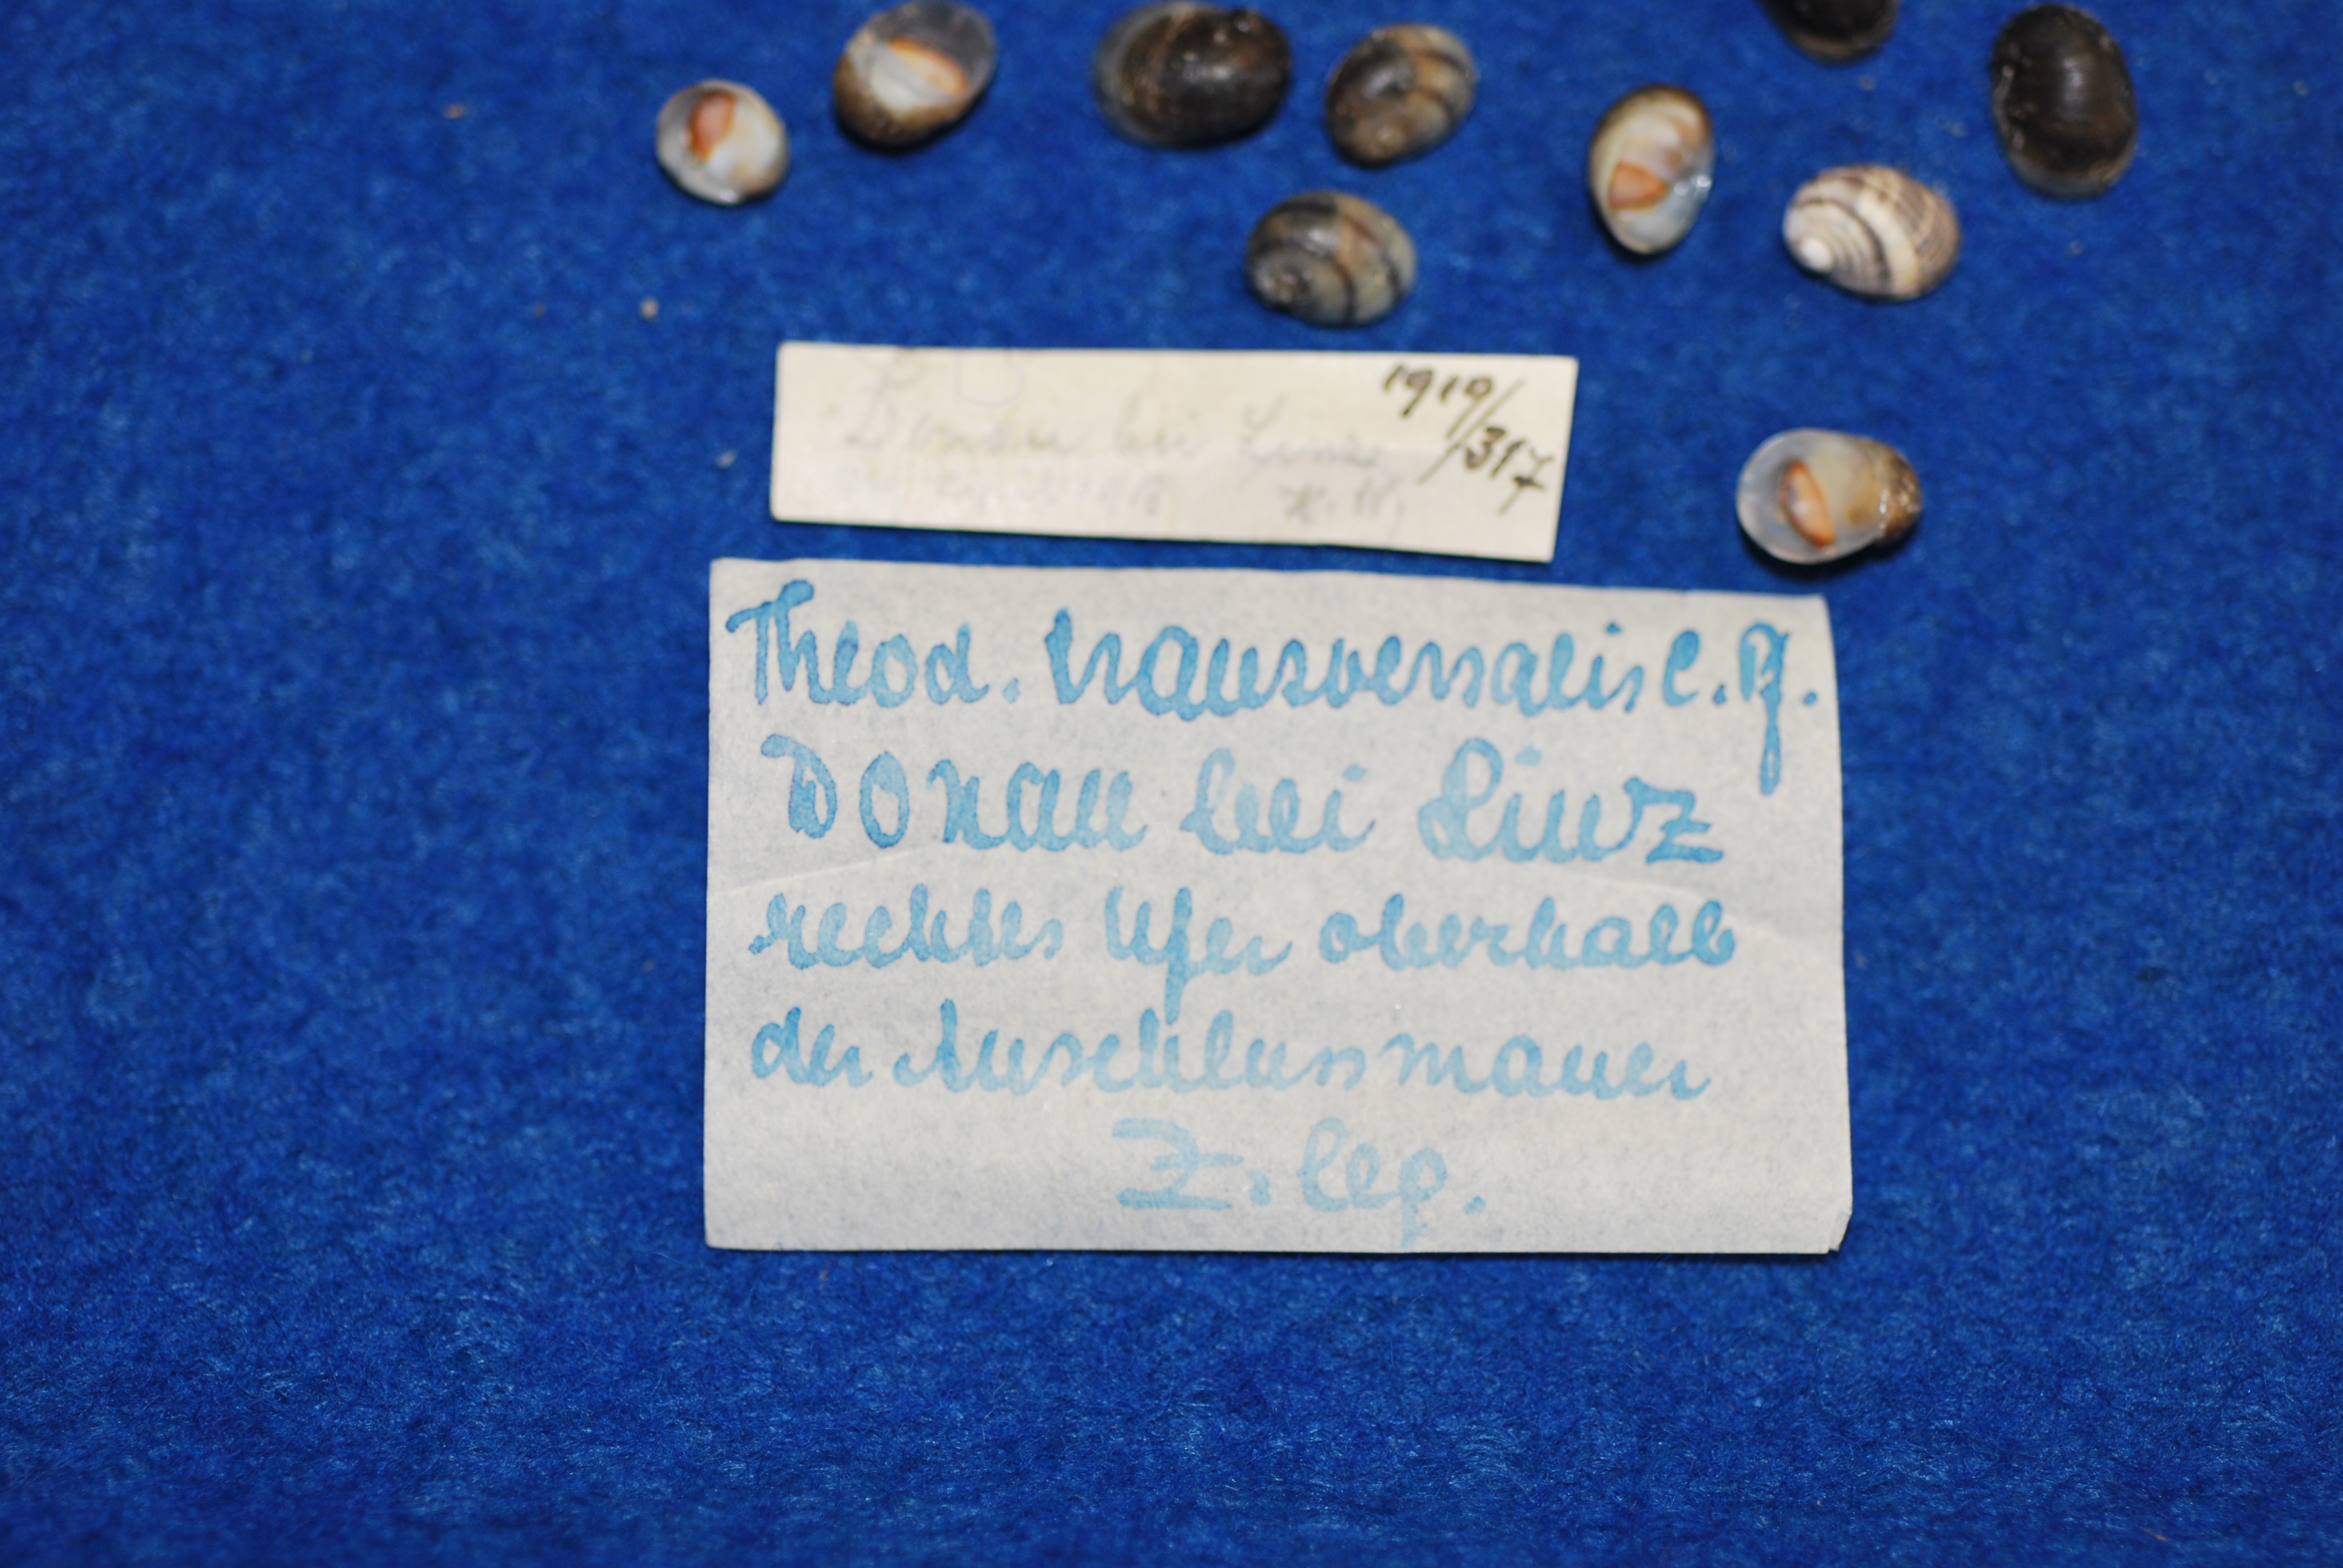 1919/317
Donau bei Linz
Theod. transversalis C. Pf.
Donau bei Linz
rechtes Ufer oberhalb
der Anschlussmauer
Z. leg.